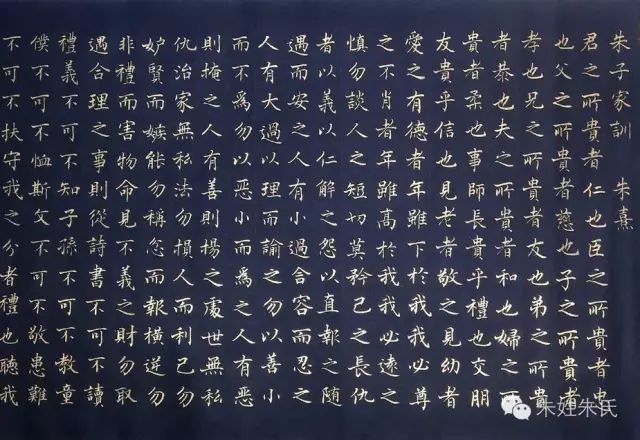 朱子家訓 朱熹
君之所貴者仁也臣之所貴者忠
也父之所貴者慈也子之所貴者
孝也兄之所貴者友也弟之所貴
者恭也夫之所貴者和也婦之所
貴者柔也事師長貴乎禮也交朋
友貴乎信也見老者敬之見幼者
愛之有德者年雖下於我我必尊
之不肖者年雖高於我我必遠之
慎勿談人之短切莫矜己之長仇
者以義以仁解之怨以直報之随
遇而安之人有小過含容而忍之
人有大過以理而諭之勿以善小
而不爲勿以惡小而爲之人有惡
則掩之人有善則揚之處世無私
仇治家無私法勿損人而利己勿
妒賢而嫉能勿稱忿而報橫逆勿
非禮而害物命見不義之財勿取
遇合理之事則從詩書不可不讀
禮義不可不知子孫不可不教童
僕不可不恤斯文不可不敬患難
不可不扶守我之分者禮也聽我
朱姓朱氏